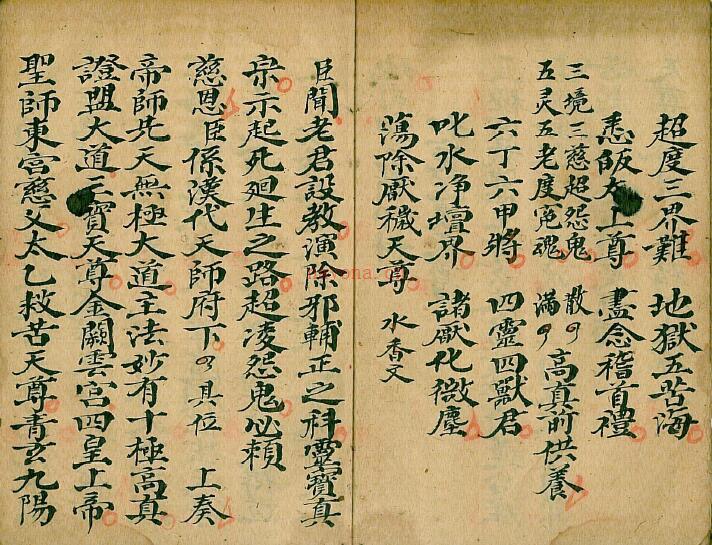 超度三界難 地獄五苦海
悉皈太上尊 盡念稽首禮
三境三慈超怨鬼 散々
五灵五老度冤魂 滿々 高真前供養
六丁六甲將 四靈四獸君
叱水净壇界 諸厭化微塵
蕩除厭穢天尊 水香文
臣聞老君設教演除邪輔正之科靈寶真
宗示起死廻生之路超凌怨鬼必賴
慈恩臣係漢代天師府下々具位 上奏
帝師先天無極大道主法妙有十極高真
證盟大道三寶天尊金闕雲宮四皇上帝
聖師東宮慈父太乙救苦天尊青玄九陽